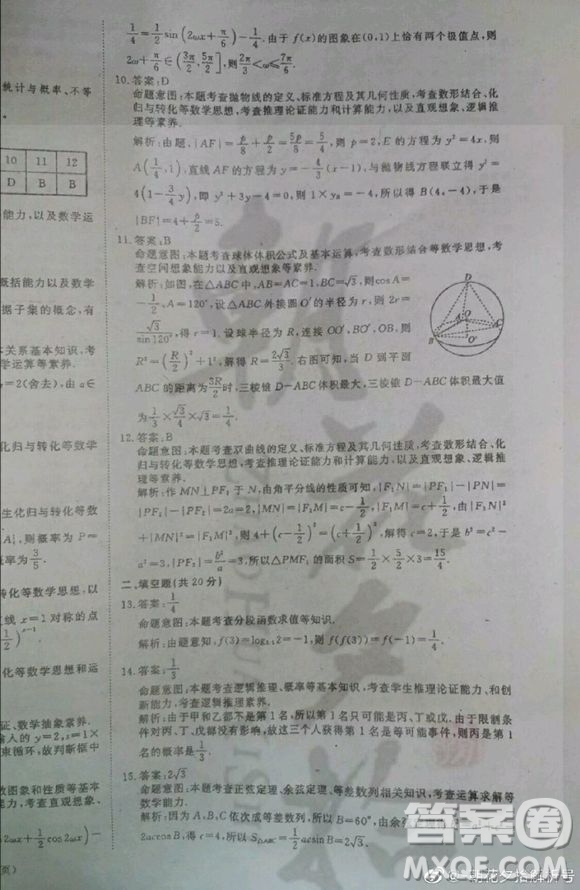 统计与概率、不等
10 11 12
D B B
能力,以及数学运
概括能力以及数学
据子集的概念,有
关系基本知识,考
学运算等素养.
=2(舍去),由a∈
化归与转化等数学
生化归与转化等数
则概率为P=
3/5.
转化等数学思想,以
线x=1对称的点
化等数学思想和运
证、数学抽象素养.
输入的y=2,执行
束循环,故判断框中
数图象和性质等基本
1/4=1/2sin(2ωx+π/6)-1/4.由于f(x)的图象在(0,1)上恰有两个极值点,则
2ω+π/6∈(3π/2,5π/2],则2π/3<ω≤7π/6.
10.答案:D
命题意图:本题考查抛物线的定义、标准方程及其几何性质,考查数形结合、化
归与转化等数学思想,考查推理论证能力和计算能力,以及直观想象、逻辑推
理等素养.
解析:由题,|AF|=p/8+p/2=5p/8=5/4,则p=2,E的方程为y²=4x,则
A(1/4,1),直线AF的方程为y=-4/3(x-1),与抛物线方程联立得y²=
4(1-3/4y),即y²+3y-4=0,则1×yB=-4,所以得B(4,-4),于是
|BF|=4+p/2=5.
11.答案:B
命题意图:本题考查球体体积公式及基本运算,考查数形结合等数学思想,考
查空间想象能力以及直观想象等素养.
解析:如图,在△ABC中,AB=AC=1,BC=√3,则cosA=
-1/2,A=120°,设△ABC外接圆的O′的半径为r,则2r=
√3/sin120°,得r=1.设球半径为R,连接OO′,BO′,BO,则
R²=(R/2)²+1²,解得R=2√3/3.右图可知,当D到平面
ABC的距离为3R/2时,三棱锥D-ABC体积最大,三棱锥D-ABC体积最大值
为1/3×√3/4×√3=1/4.
12.答案:B
命题意图:本题考查双曲线的定义、标准方程及其几何性质,考查数形结合、化
归与转化等数学思想,考查推理论证能力和计算能力,以及直观想象、逻辑推
理等素养.
解析:作MN⊥PF₁于N,由角平分线的性质可知,|F₁N|=|PF₁|-|PN|=
|PF₁|-|PF₂|=2a=2,|MN|=|MF₂|=c-1/2,|MF₁|=c+1/2,由|F₁N|²
+|MN|²=|F₁M|²,则4+(c-1/2)²=(c+1/2)²,解得c=2,于是b²=c²-
a²=3,|PF₂|=b²/a=3,所以△PMF₁的面积S=1/2×5/2×3=15/4.
二、填空题(共20分)
13.答案:1/4
命题意图:本题考查分段函数求值等知识.
14.答案:1/3
命题意图:本题考查逻辑推理、概率等基本知识,考查学生推理论证能力、和创
新能力,考查逻辑推理等素养.
解析:由于甲和乙都不是第1名,所以第1名只可能是丙、丁或戊.由于限制条
件对丙、丁、戊都没有影响,故这三个人获得第1名是等可能事件,则丙是第1
名的概率是1/3.
15.答案:2√3
命题意图:本题考查正弦定理、余弦定理、等差数列相关知识,考查运算能力等
数学能力.
解析:因为A,B,C依次成等差数列,所以B=60°,由余
2accosB,得c=4,所以S△ABC=1/2acsinB=2√3.
答案圈
MXQE.COM